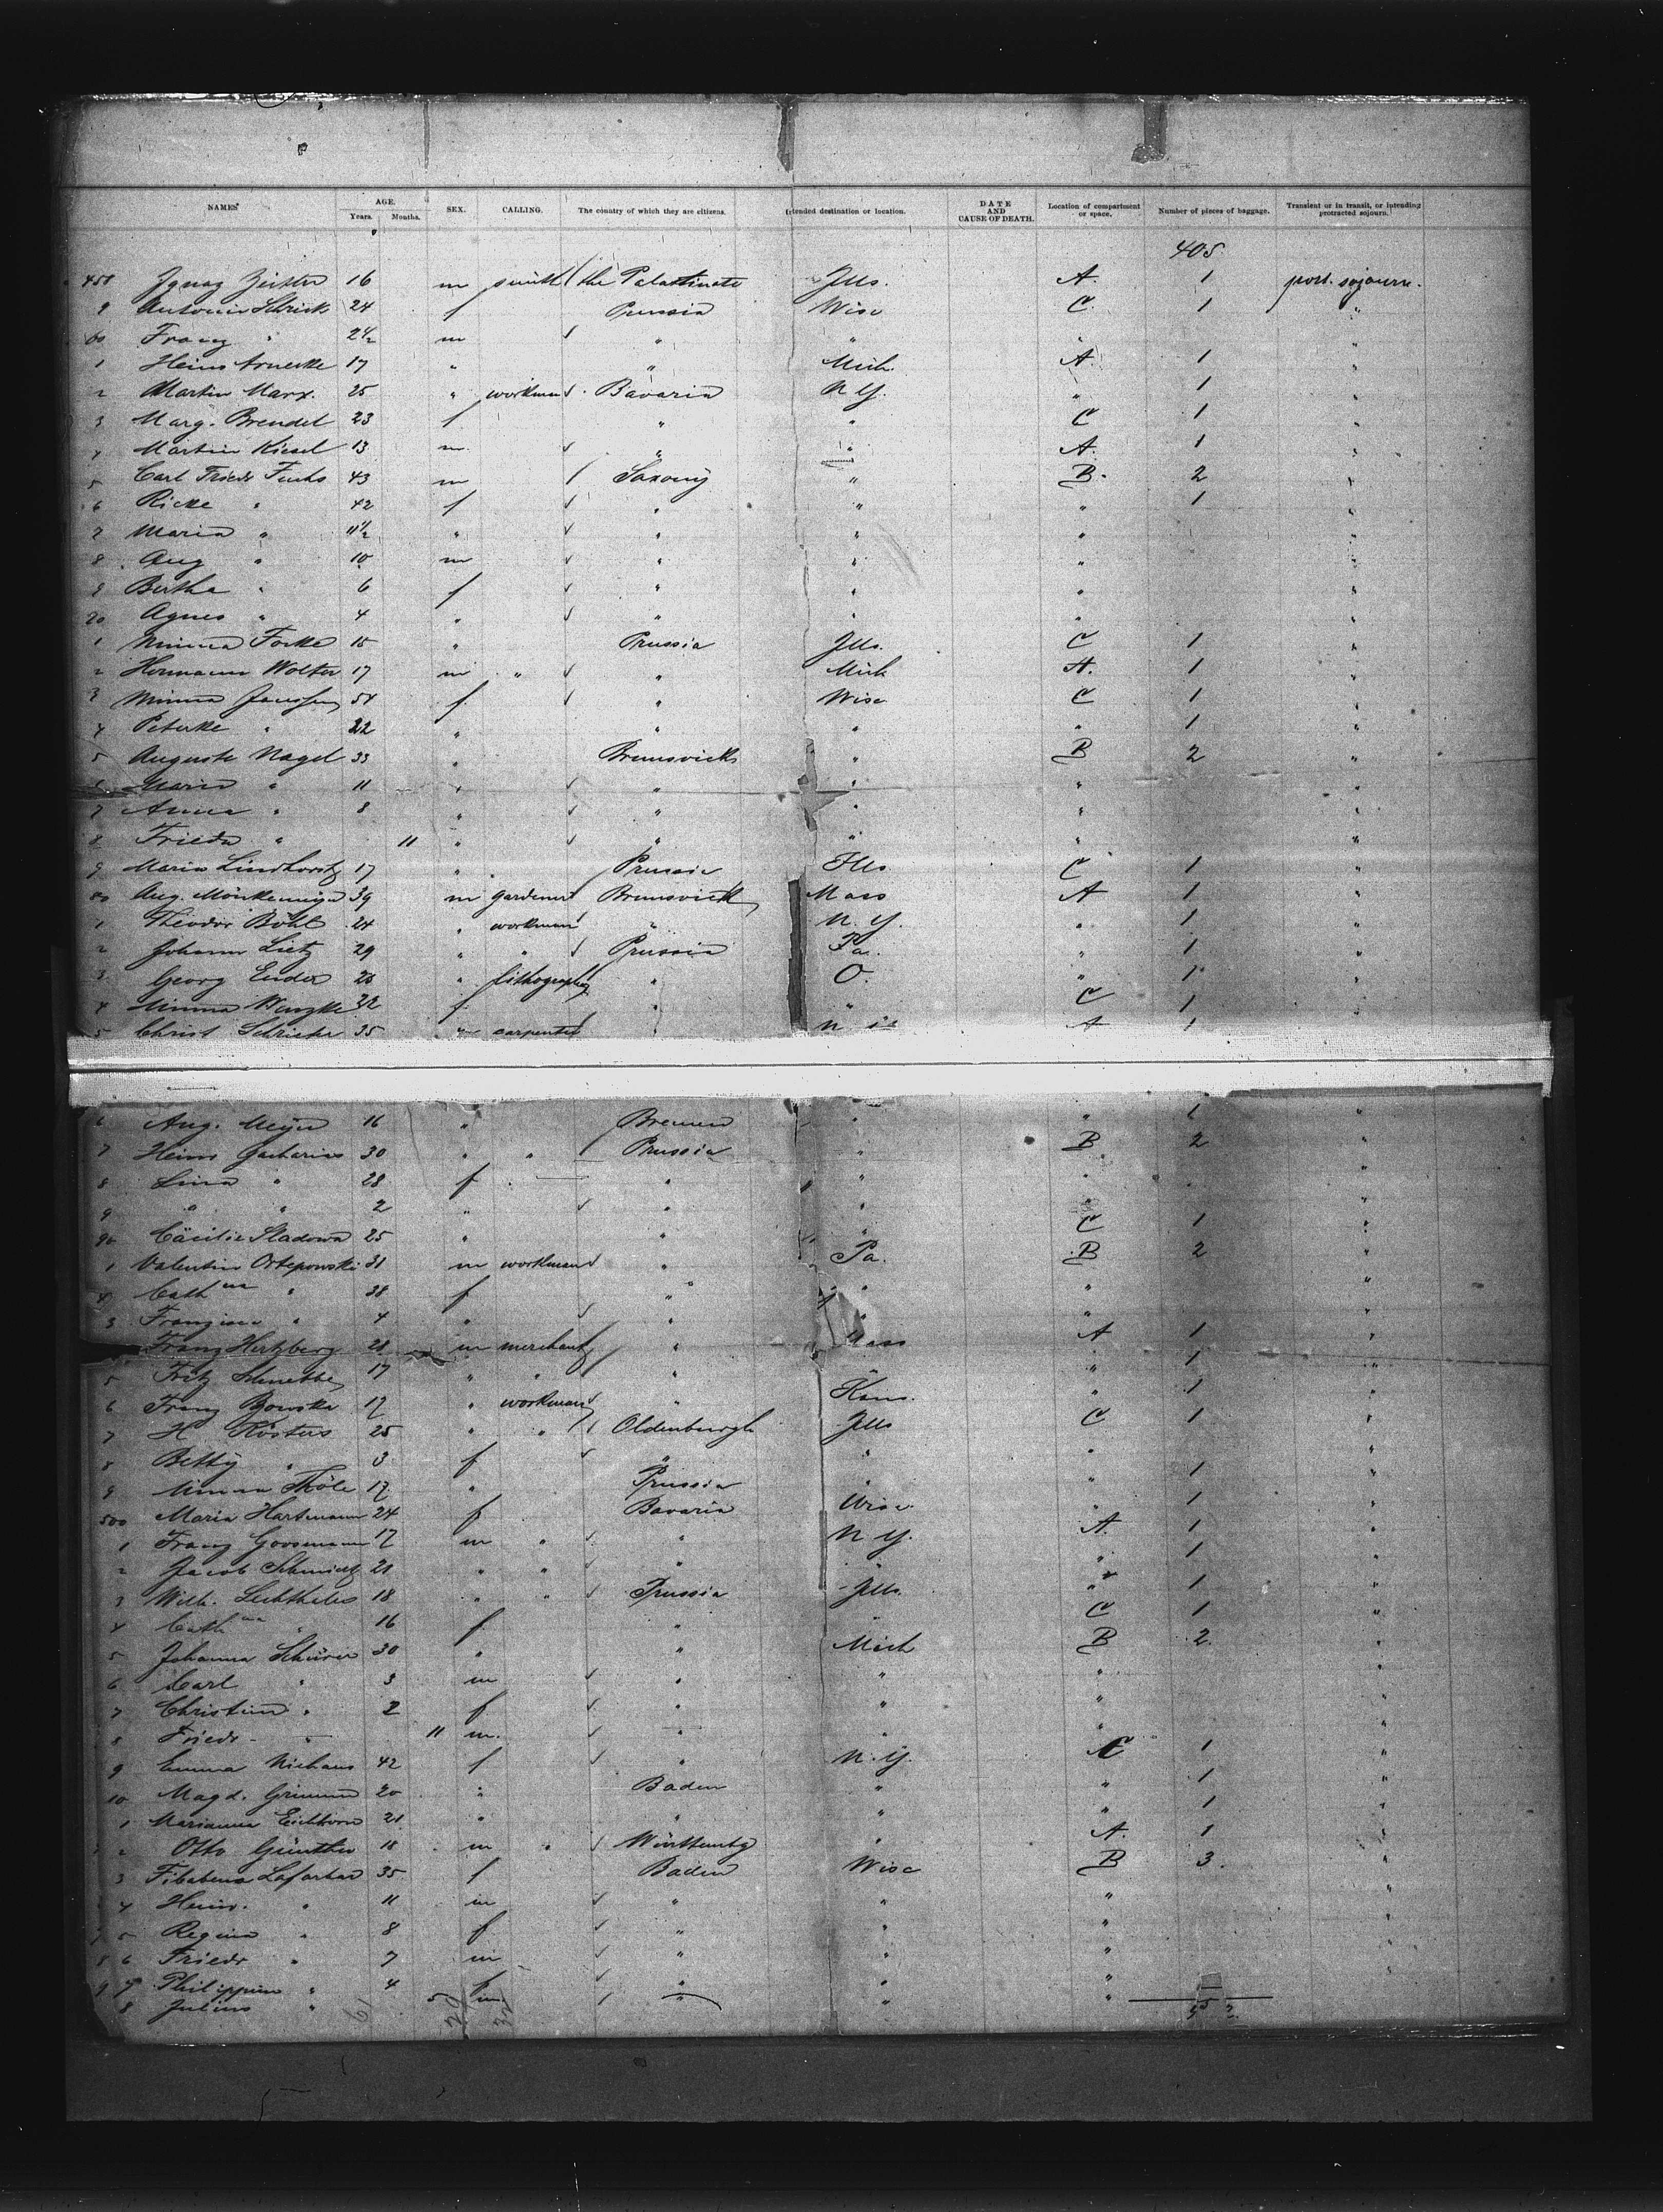 NAMES AGE. Years. Months. SEX. CALLING. The country of which they are citizens. Intended destination or location. DATE AND CAUSE OF DEATH. Location of compartment or space. Number of pieces of baggage. Transient or in transit, or intending protracted sojourn.
405
458 Ignaz 16 m smith the Palatinate Ills. A. 1 port. sojourn.
9 24 f Prussia Wisc C 1 "
60 Franz " 2½ m " " " "
1 Heinr 17 " " Mich. A. 1 "
2 Martin Marx. 25 " workman Bavaria N Y. " 1 "
3 Marg. Brendel 23 f " " C 1 "
4 Martin Kiesel 13 m " " A. 1 "
5 Carl Friedr Fuchs 43 m Saxony " B. 2 "
6 Ricke " 42 f " " " 1 "
7 Maria " 11½ " " " " "
8 Aug " 10 m " " " "
9 Bertha " 6 f " " " "
70 Agnes " 4 " " " " "
1 Minna Focke 15 " Prussia Ills. C 1 "
2 Hermann Wolter 17 m " " Mich A. 1 "
3 Minna Janssen 54 f " Wisc C 1 "
4 Peterke " 22 " " " " 1 "
5 Auguste Nagel 33 " Brunsvick " B 2 "
6 Maria " 11 " " " " "
7 Anna " 8 " " " " "
8 Frieda " 11 " " " " "
9 Maria Lindhorst 17 " Prussia Ills C 1 "
80 Aug. 39 m gardener Brunsvick Mass A 1 "
1 Theodor Böhl 24 " workman " N. Y. " 1 "
2 Johann Lietz 29 " " Prussia Pa. " 1 "
3 Georg 28 " lithograph " O. " 1 "
4 Minna 22 f " " C 1
5 Christ 35 m carpenter A 1
6 Aug. Meyer 16 " Bremen " " 1 "
7 Heinr Zacharias 30 " " Prussia " B 2 "
8 Lina " 28 f " " " "
9 " " 2 " " " " "
90 Cäcilie Sladowa 25 " " " C 1 "
1 Valentin 31 m workman " Pa. B 2 "
2 Cath na " 38 f " " " "
3 " 4 " " " "
Franz Hertzberg 21 m merchant " Mass A 1 "
5 Fritz 17 " " " " " 1 "
6 Franz 17 " workman " Kans. " 1 "
7 H Kösters 25 " " Oldenburgh Ills C 1 "
8 Betty " 3 f " " " "
9 Minna Thöle 17 " Prussia " " 1
500 Maria Hartmann 24 f Bavaria Wisc. " 1 "
1 Franz Goosmann 17 m " " N Y. A. 1 "
2 Jacob Schmidt 21 " " " " " 1 "
3 Wilh. 18 " " Prussia Ills. " 1 "
4 Cath na " 16 f " C 1 "
5 Johanna 30 " " Mich B 2. "
6 Carl " 3 m " " " "
7 Christine " 2 f " " " "
8 Friedr " 11 m. " " " "
9 Emma Niehaus 42 f " N. Y. C 1 "
10 Magd. Grimm 20 " Baden " " 1 "
1 Marianna Eichhorn 21 " " " " 1 "
2 Otto Günther 18 m " Württembg " A. 1 "
3 35 f Baden Wisc B 3. "
4 Heinr. " 11 m " " " "
5 Regina " 8 f " " " "
6 Friedr " 7 m " " " "
7 Philippine " 4 f " " " "
8 Julius " 5 m " " "